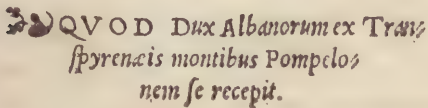 QVOD Dux Albanorum ex Trans⸗
ſpyrenæis montibus Pompelo⸗
nem ſe recepit.